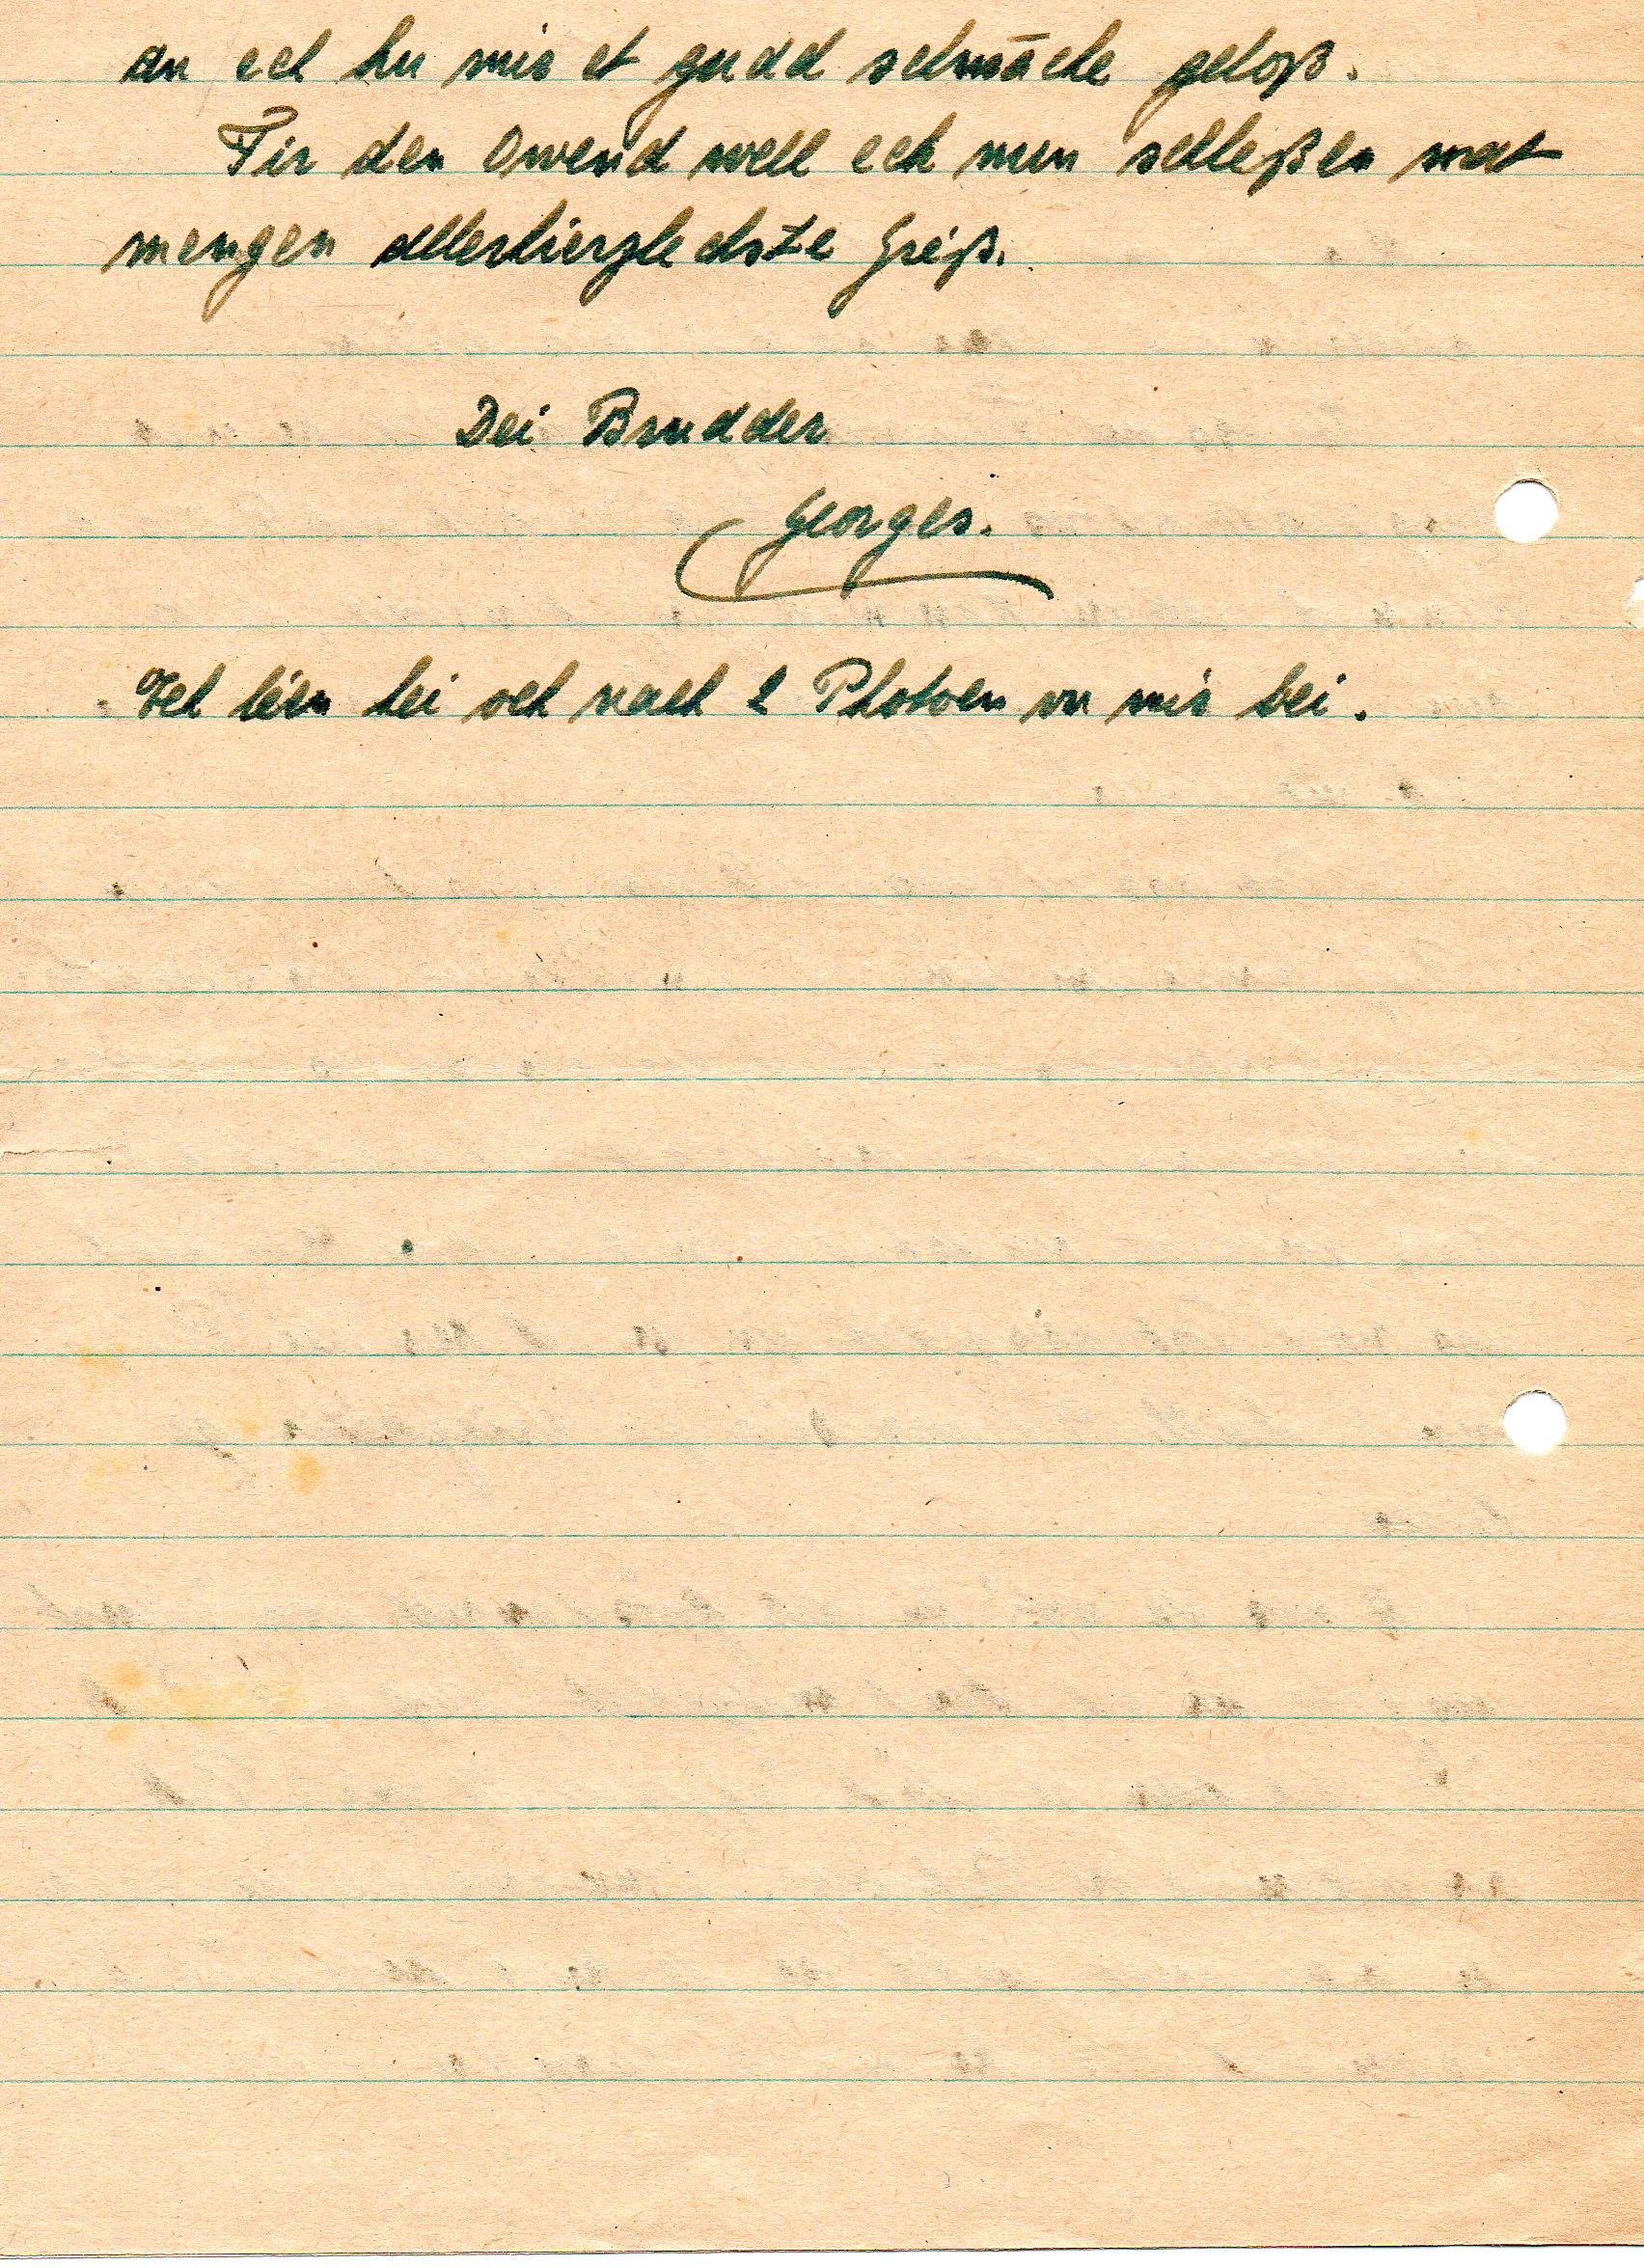 an ech hu mir et gudd schmāche geloß.
Fir den Owend well ech nun schleßen mat
mengen allerhierzlechste Gréiß.
Dei Brudder
Georges.
Ech léen hei och nach 2 Photoen vu mir bei.